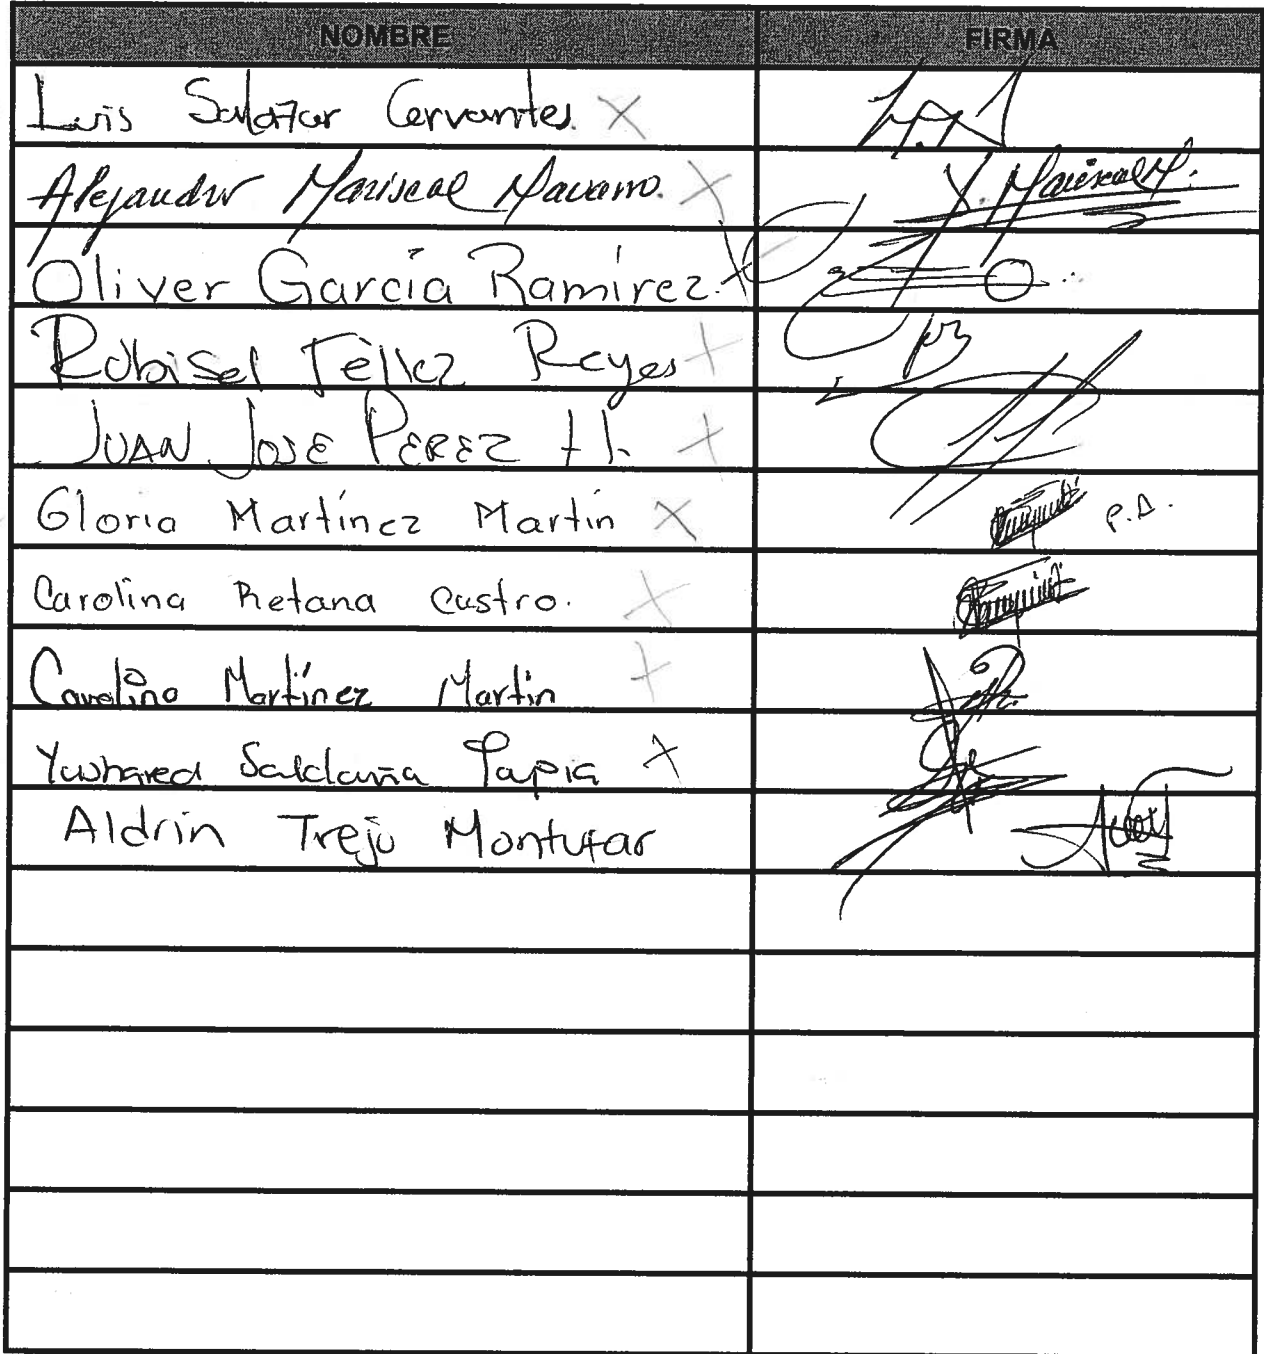 NOMBRE FIRMA
Luis Salazar Cervantes. X
Alejandro Mariscal Navarro. X Mariscal M.
Oliver García Ramírez. X
Robisel Téllez Reyes X
JUAN JOSE PEREZ H. X
Gloria Martínez Martin X P.A.
Carolina Retana Castro. X
Carolina Martínez Martin X
Yushared Saldaña Tapia X
Aldrin Trejo Montufar